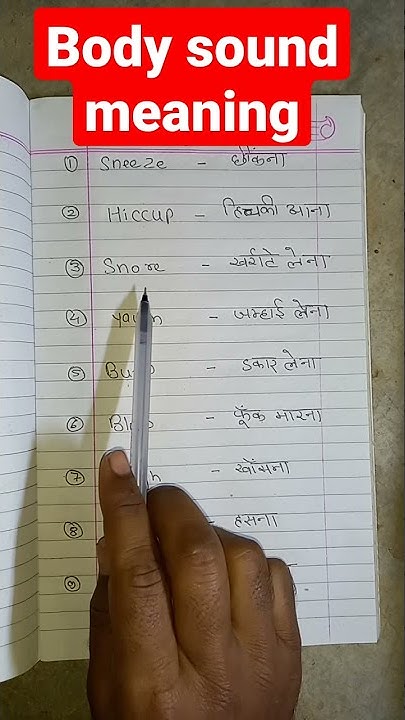 Body sound
meaning
① Sneeze - छींकना
② Hiccup - हिचकी आना
③ Snore - खर्राटे लेना
④ - जम्हाई लेना
⑤ - डकार लेना
⑥ - फूँक मारना
⑦ - खाँसना
⑧ - हंसना
⑨